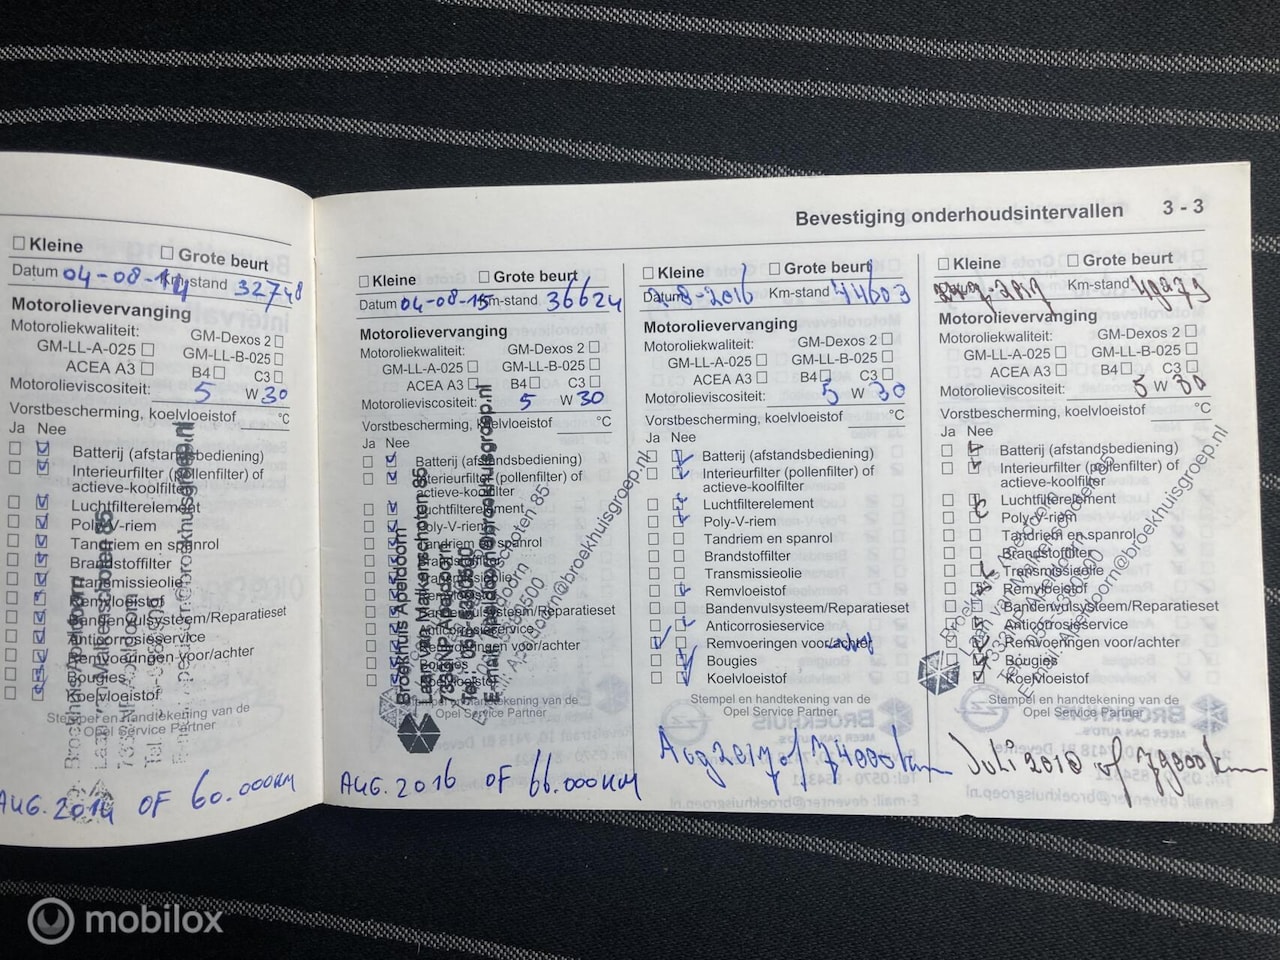 Bevestiging onderhoudsintervallen 3 - 3
Kleine Grote beurt
Datum 04-08-14 Km-stand 32748
Motorolievervanging
Motoroliekwaliteit: GM-Dexos 2
GM-LL-A-025 GM-LL-B-025
ACEA A3 B4 C3
Motorolieviscositeit: 5 W 30
Vorstbescherming, koelvloeistof °C
Ja Nee
Batterij (afstandsbediening)
Interieurfilter (pollenfilter) of
actieve-koolfilter
Luchtfilterelement
Poly-V-riem
Tandriem en spanrol
Brandstoffilter
Transmissieolie
Remvloeistof
Bandenvulsysteem/Reparatieset
Anticorrosieservice
Remvoeringen voor/achter
Bougies
Koelvloeistof
Stempel en handtekening van de
Opel Service Partner
AUG. 2014 OF 60.000KM
Kleine Grote beurt
Datum 04-08-15 Km-stand 36624
Motorolievervanging
Motoroliekwaliteit: GM-Dexos 2
GM-LL-A-025 GM-LL-B-025
ACEA A3 B4 C3
Motorolieviscositeit: 5 W 30
Vorstbescherming, koelvloeistof °C
Ja Nee
Batterij (afstandsbediening)
Interieurfilter (pollenfilter) of
actieve-koolfilter
Luchtfilterelement
Poly-V-riem
Tandriem en spanrol
Brandstoffilter
Transmissieolie
Remvloeistof
Bandenvulsysteem/Reparatieset
Anticorrosieservice
Remvoeringen voor/achter
Bougies
Koelvloeistof
Broekhuis Apeldoorn
Laan van Malkenschoten 85
Stempel en handtekening van de
Opel Service Partner
AUG. 2016 OF 66.000KM
Kleine Grote beurt
Datum 2-8-2016 Km-stand 44603
Motorolievervanging
Motoroliekwaliteit: GM-Dexos 2
GM-LL-A-025 GM-LL-B-025
ACEA A3 B4 C3
Motorolieviscositeit: 5 W 30
Vorstbescherming, koelvloeistof °C
Ja Nee
Batterij (afstandsbediening)
Interieurfilter (pollenfilter) of
actieve-koolfilter
Luchtfilterelement
Poly-V-riem
Tandriem en spanrol
Brandstoffilter
Transmissieolie
Remvloeistof
Bandenvulsysteem/Reparatieset
Anticorrosieservice
Remvoeringen voor/achter
Bougies
Koelvloeistof
Stempel en handtekening van de
Opel Service Partner
Aug 2017 of 74000km
Kleine Grote beurt
Km-stand 49279
Motorolievervanging
Motoroliekwaliteit: GM-Dexos 2
GM-LL-A-025 GM-LL-B-025
ACEA A3 B4 C3
Motorolieviscositeit: 5 W 30
Vorstbescherming, koelvloeistof °C
Ja Nee
Batterij (afstandsbediening)
Interieurfilter (pollenfilter) of
actieve-koolfilter
Luchtfilterelement
Poly-V-riem
Tandriem en spanrol
Brandstoffilter
Transmissieolie
Remvloeistof
Bandenvulsysteem/Reparatieset
Anticorrosieservice
Remvoeringen voor/achter
Bougies
Koelvloeistof
Stempel en handtekening van de
Opel Service Partner
Juli 2018 of 79000km
mobilox